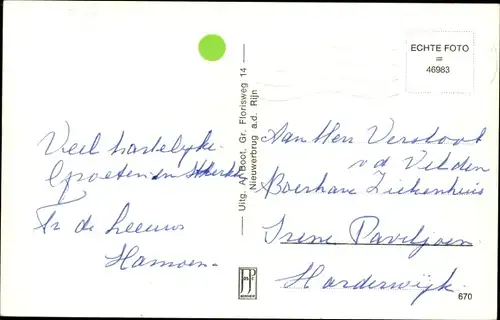 Veel hartelijke
Groeten en Sterkte
Fr de Leeuw
Hansen.
Uitg. A. Boot, Gr. Florisweg 14 —
Nieuwerbrug a.d. Rijn
ECHTE FOTO
=
46983
Aan Herr Verstoot
v d Velden
Boerhave Ziekenhuis
Irene Paveljoen
Harderwijk.
670